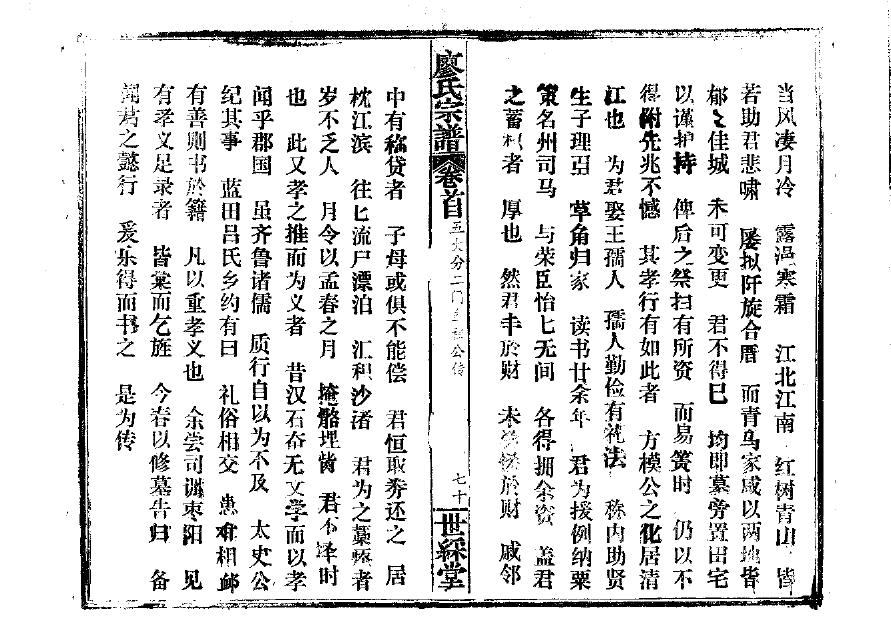 当风凄月冷 露浥寒霜 江北江南 红树青山 皆
若助君悲啸 屡拟阡旋合厝 而青乌家咸以两地皆
郁之佳城 未可变更 君不得已 均即墓旁置田宅
以谨护持 俾后之祭扫有所资 而易箦时 仍以不
得附先兆不憾 其孝行有如此者 方模公之化居清
江也 为君娶王孺人 孺人勤俭有礼法 称内助贤
生子理亞 草角归家 读书廿余年 君为援例纳粟
策名州司马 与荣臣怡七无间 各得拥余资 盖君
之蓄积者 厚也 然君丰於财 未 於财 戚邻
廖氏宗谱 卷首 五大分二门 公传 七十 世綵堂
中有称贷者 子母或俱不能偿 君恒取券还之 居
枕江滨 往匕流尸漂泊 汇积沙渚 君为之藁 者
岁不乏人 月令以孟春之月 掩骼埋胔 君不择时
也 此又孝之推而为义者 昔汉石奋无文学而以孝
闻乎郡国 虽齐鲁诸儒 质行自以为不及 太史公
纪其事 蓝田吕氏乡约有曰 礼俗相交 患难相
有善则书於籍 凡以重孝义也 余尝司 枣阳 见
有孝义足录者 皆稟而乞旌 今春以修墓告归 备
闻君之懿行 爰乐得而书之 是为传